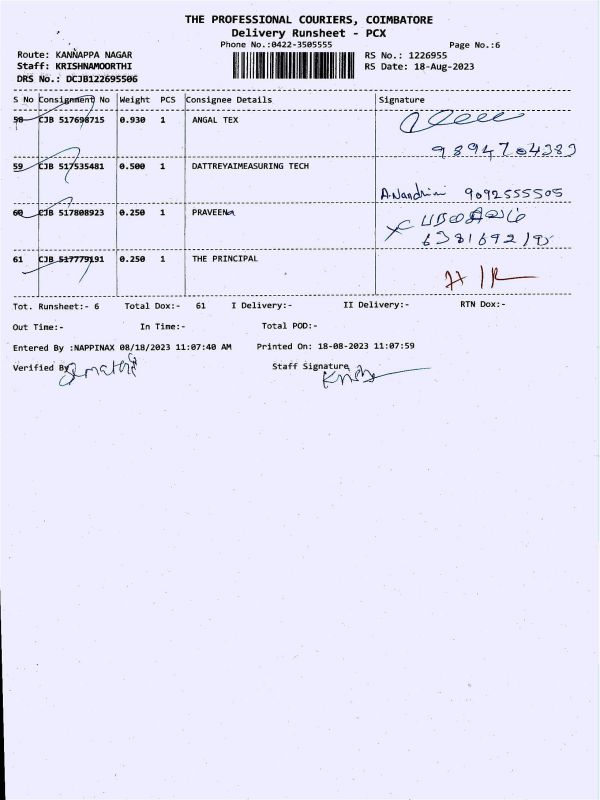 THE PROFESSIONAL COURIERS, COIMBATORE
Delivery Runsheet - PCX
Phone No.:0422-3505555 Page No.:6
Route: KANNAPPA NAGAR RS No.: 1226955
Staff: KRISHNAMOORTHI RS Date: 18-Aug-2023
DRS No.: DCJB122695506
S No Consignment No Weight PCS Consignee Details Signature
58 CJB 517698715 0.930 1 ANGAL TEX
9894704383
59 CJB 517535481 0.500 1 DATTREYAIMEASURING TECH
A.Nandhini 9092555505
60 CJB 517808923 0.250 1 PRAVEEN
61 CJB 517779191 0.250 1 THE PRINCIPAL
Tot. Runsheet:- 6 Total Dox:- 61 I Delivery:- II Delivery:- RTN Dox:-
Out Time:- In Time:- Total POD:-
Entered By :NAPPINAX 08/18/2023 11:07:40 AM Printed On: 18-08-2023 11:07:59
Verified By Staff Signature